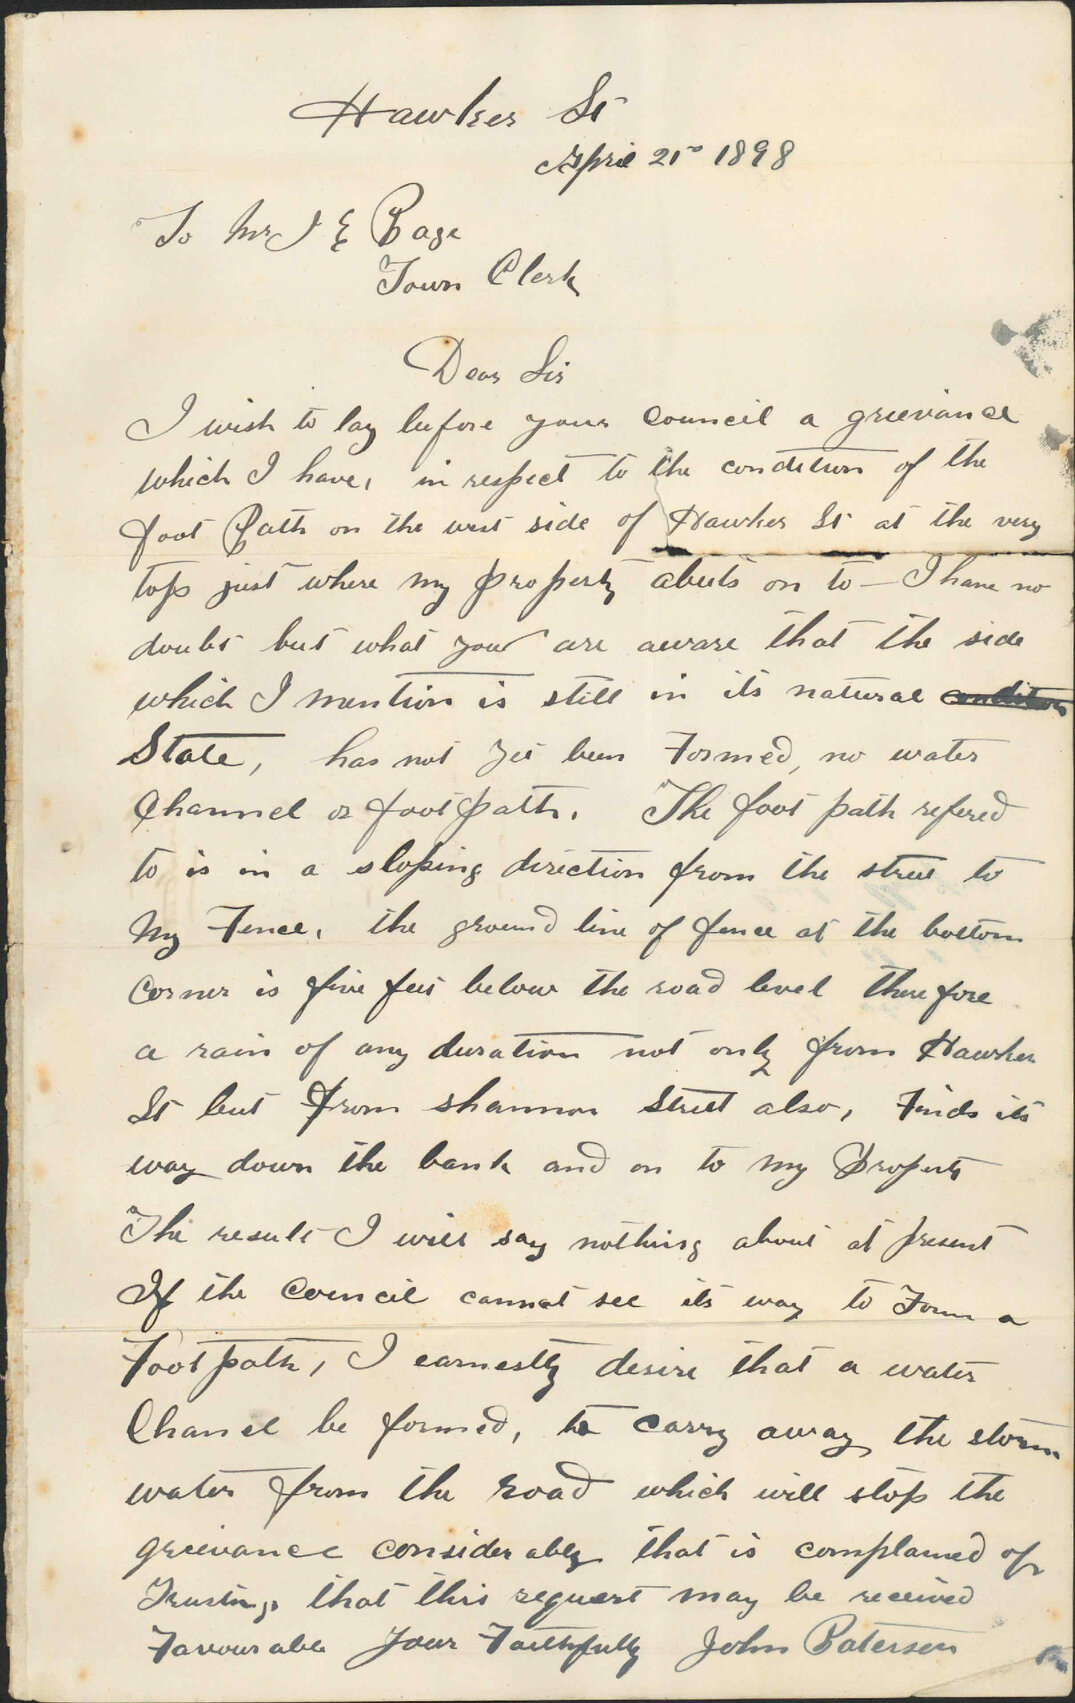 Hawker St
April 21st 1898
To Mr J E Page
Town Clerk
Dear Sir
I wish to lay before your Council a grievance
which I have, in respect to the condition of the
foot Path on the west side of Hawker St at the very
top just where my property abuts on to — I have no
doubt but what your are aware that the side
which I mention is still in its natural condition
State, has not yet been Formed, no water
Channel or foot path. The foot path refered
to is in a sloping direction from the street to
My Fence, the ground line of fence at the bottom
corner is five feet below the road level therefore
a rain of any duration not only from Hawker
St but From shannon Street also, Finds its
way down the bank and on to my Property
The result I will say nothing about at present
If the Council cannot see its way to Form a
Foot path, I earnestly desire that a water
Chanel be formed, to carry away the storm
water from the road which will stop the
grievance considerably that is complained of
Trusting that this request may be received
Favourable Your Faithfully John Paterson